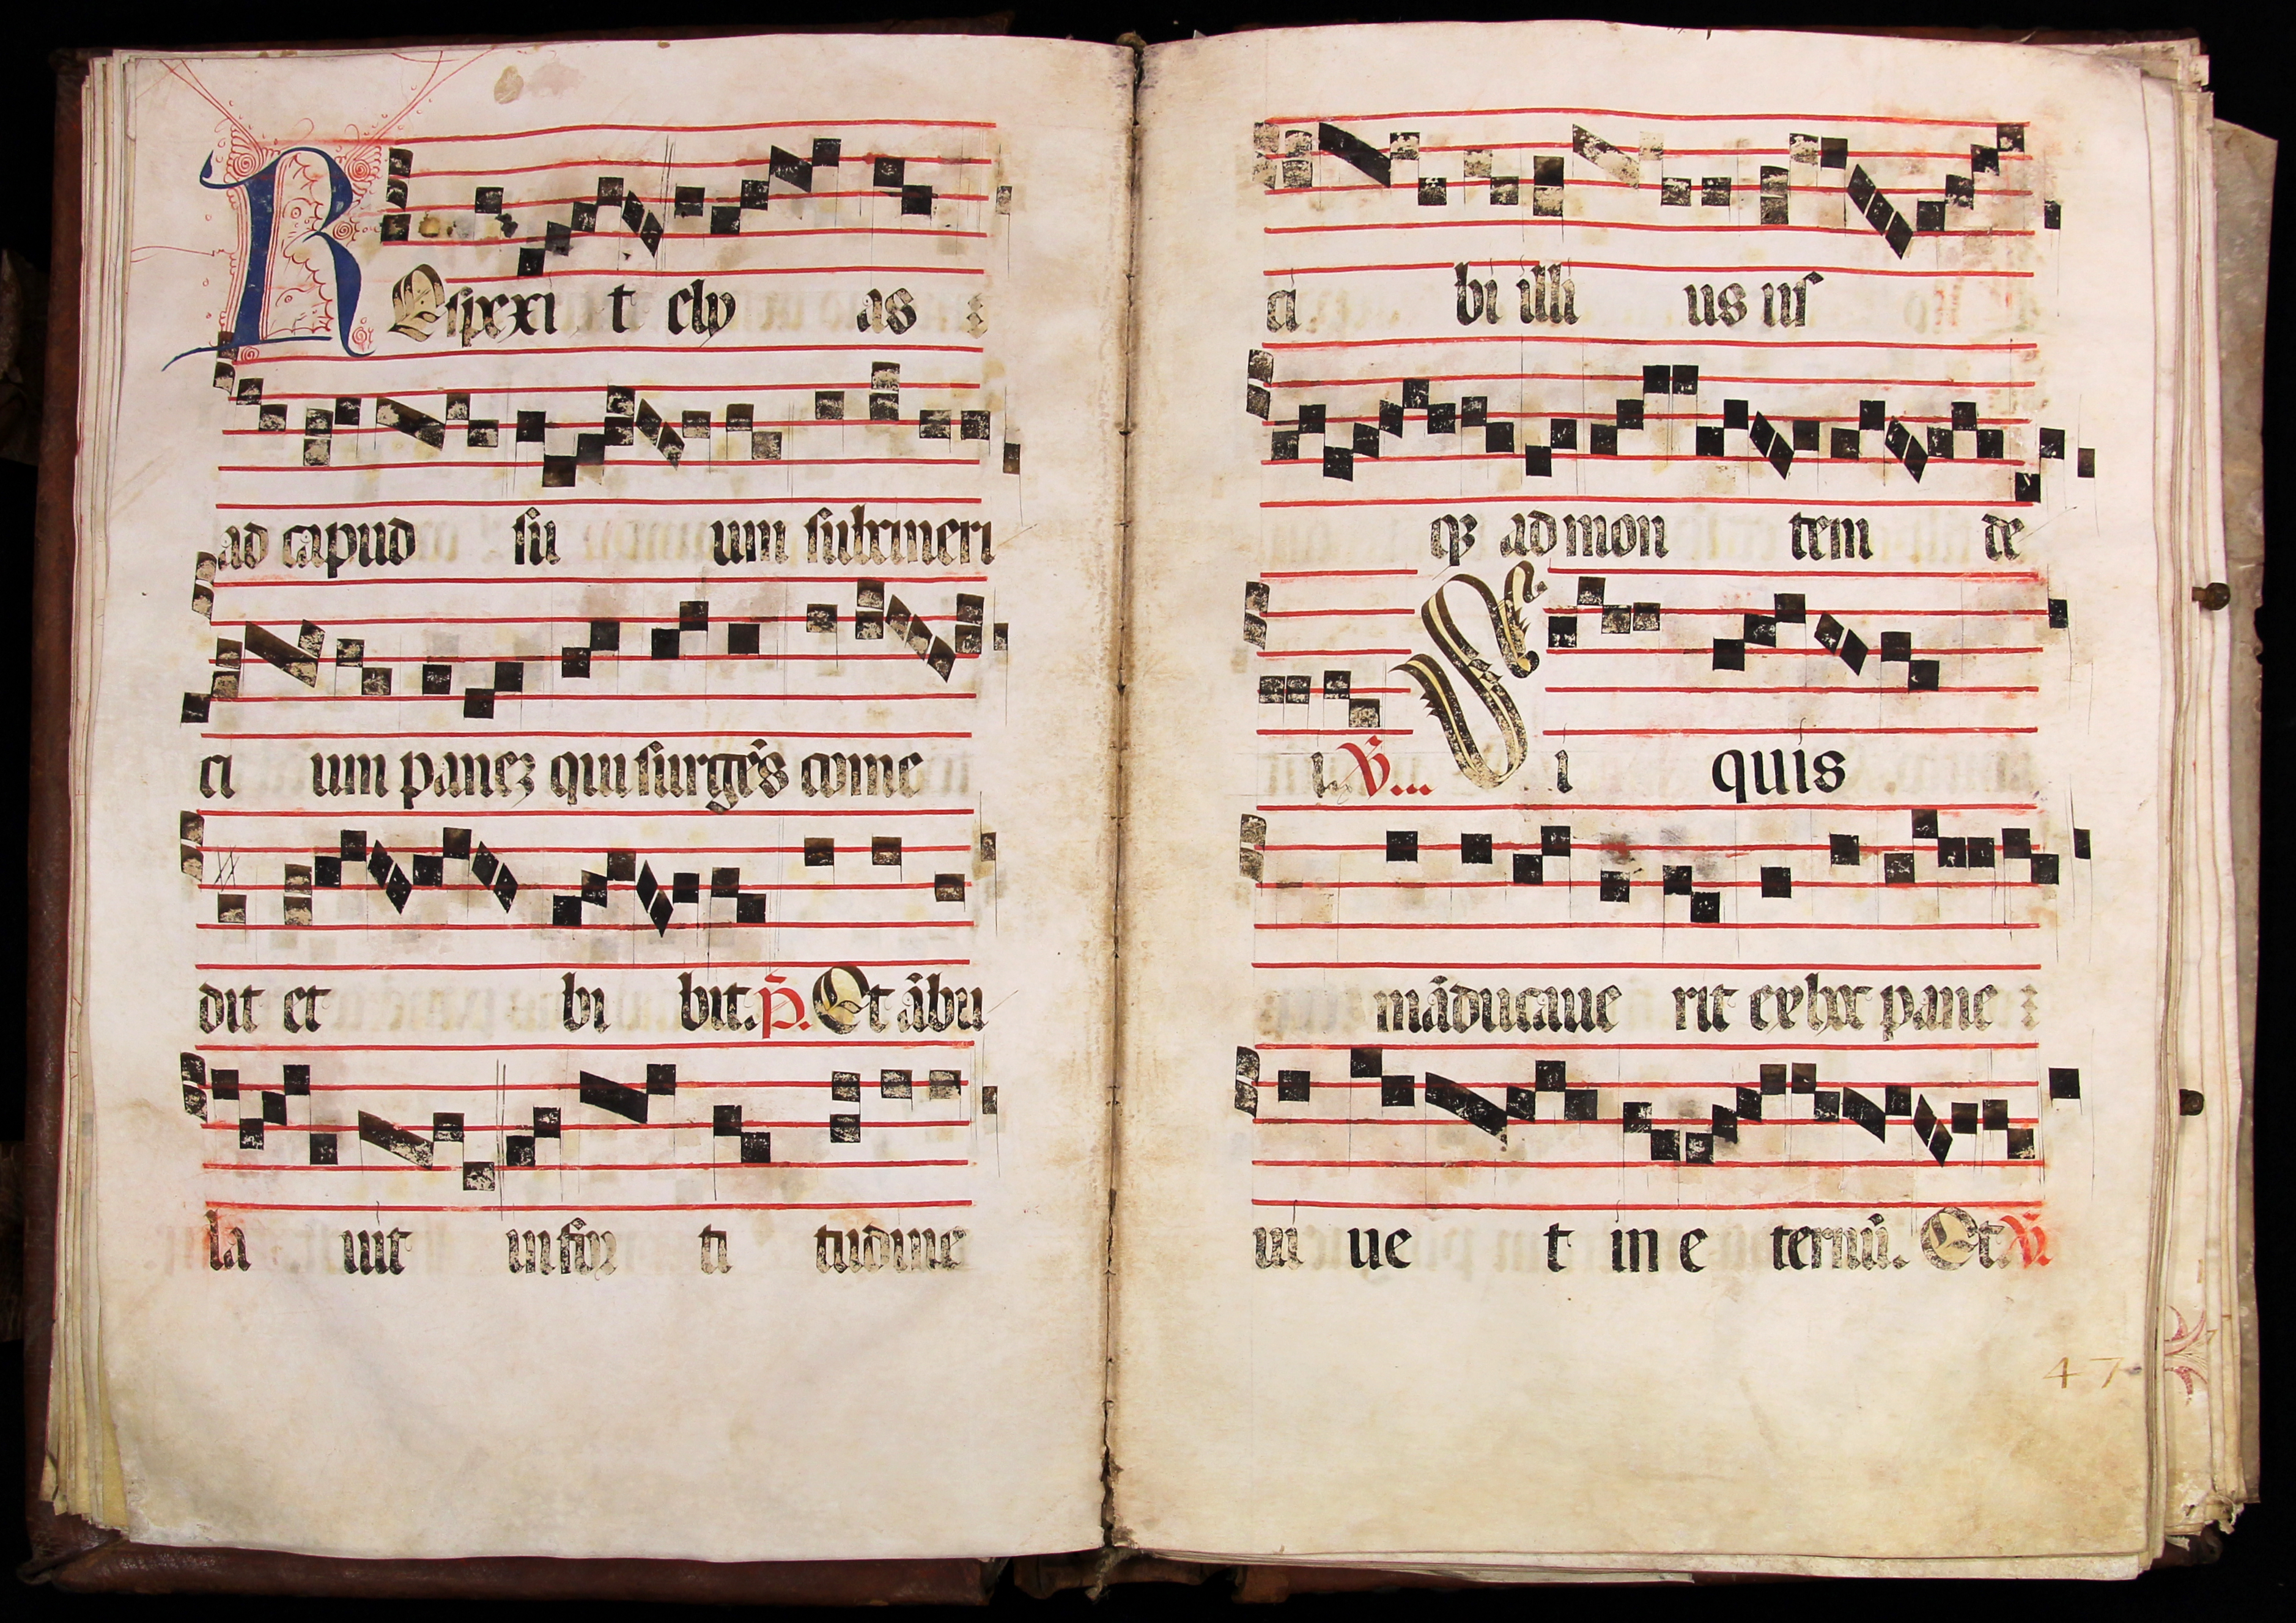 REspexi t ely as
ad capud su um subcineri
ci um panez qui surgēs come
dit et bi bit. P. Et ābu
la uit in for ti tudine
ci bi illi us us
qz ad mon tem de
i. V... Si quis
māducaue rit ex hoc pane
ui ue t in e ternū. Et. V.
47